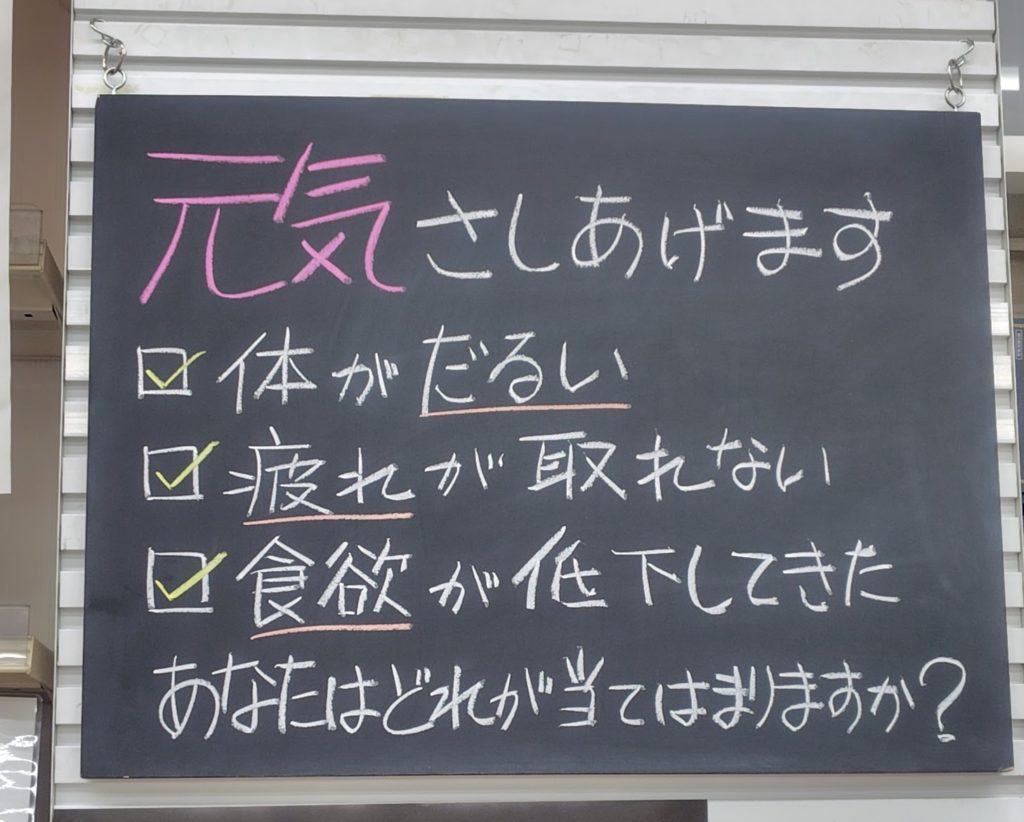 元気さしあげます
☑体がだるい
☑疲れが取れない
☑食欲が低下してきた
あなたはどれが当てはまりますか?